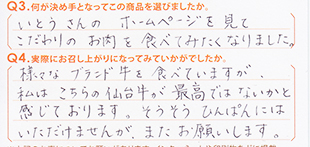 Q3.何が決め手となってこの商品を選びましたか。
いとうさんの ホームページを見て
こだわりの お肉を食べてみたくなりました。
Q4.実際にお召し上がりになってみていかがでしたか。
様々な ブランド牛を食べていますが、
私は こちらの仙台牛が 最高ではないかと
感じております。そうそう ひんぱんには
いただけませんが、またお願いします。